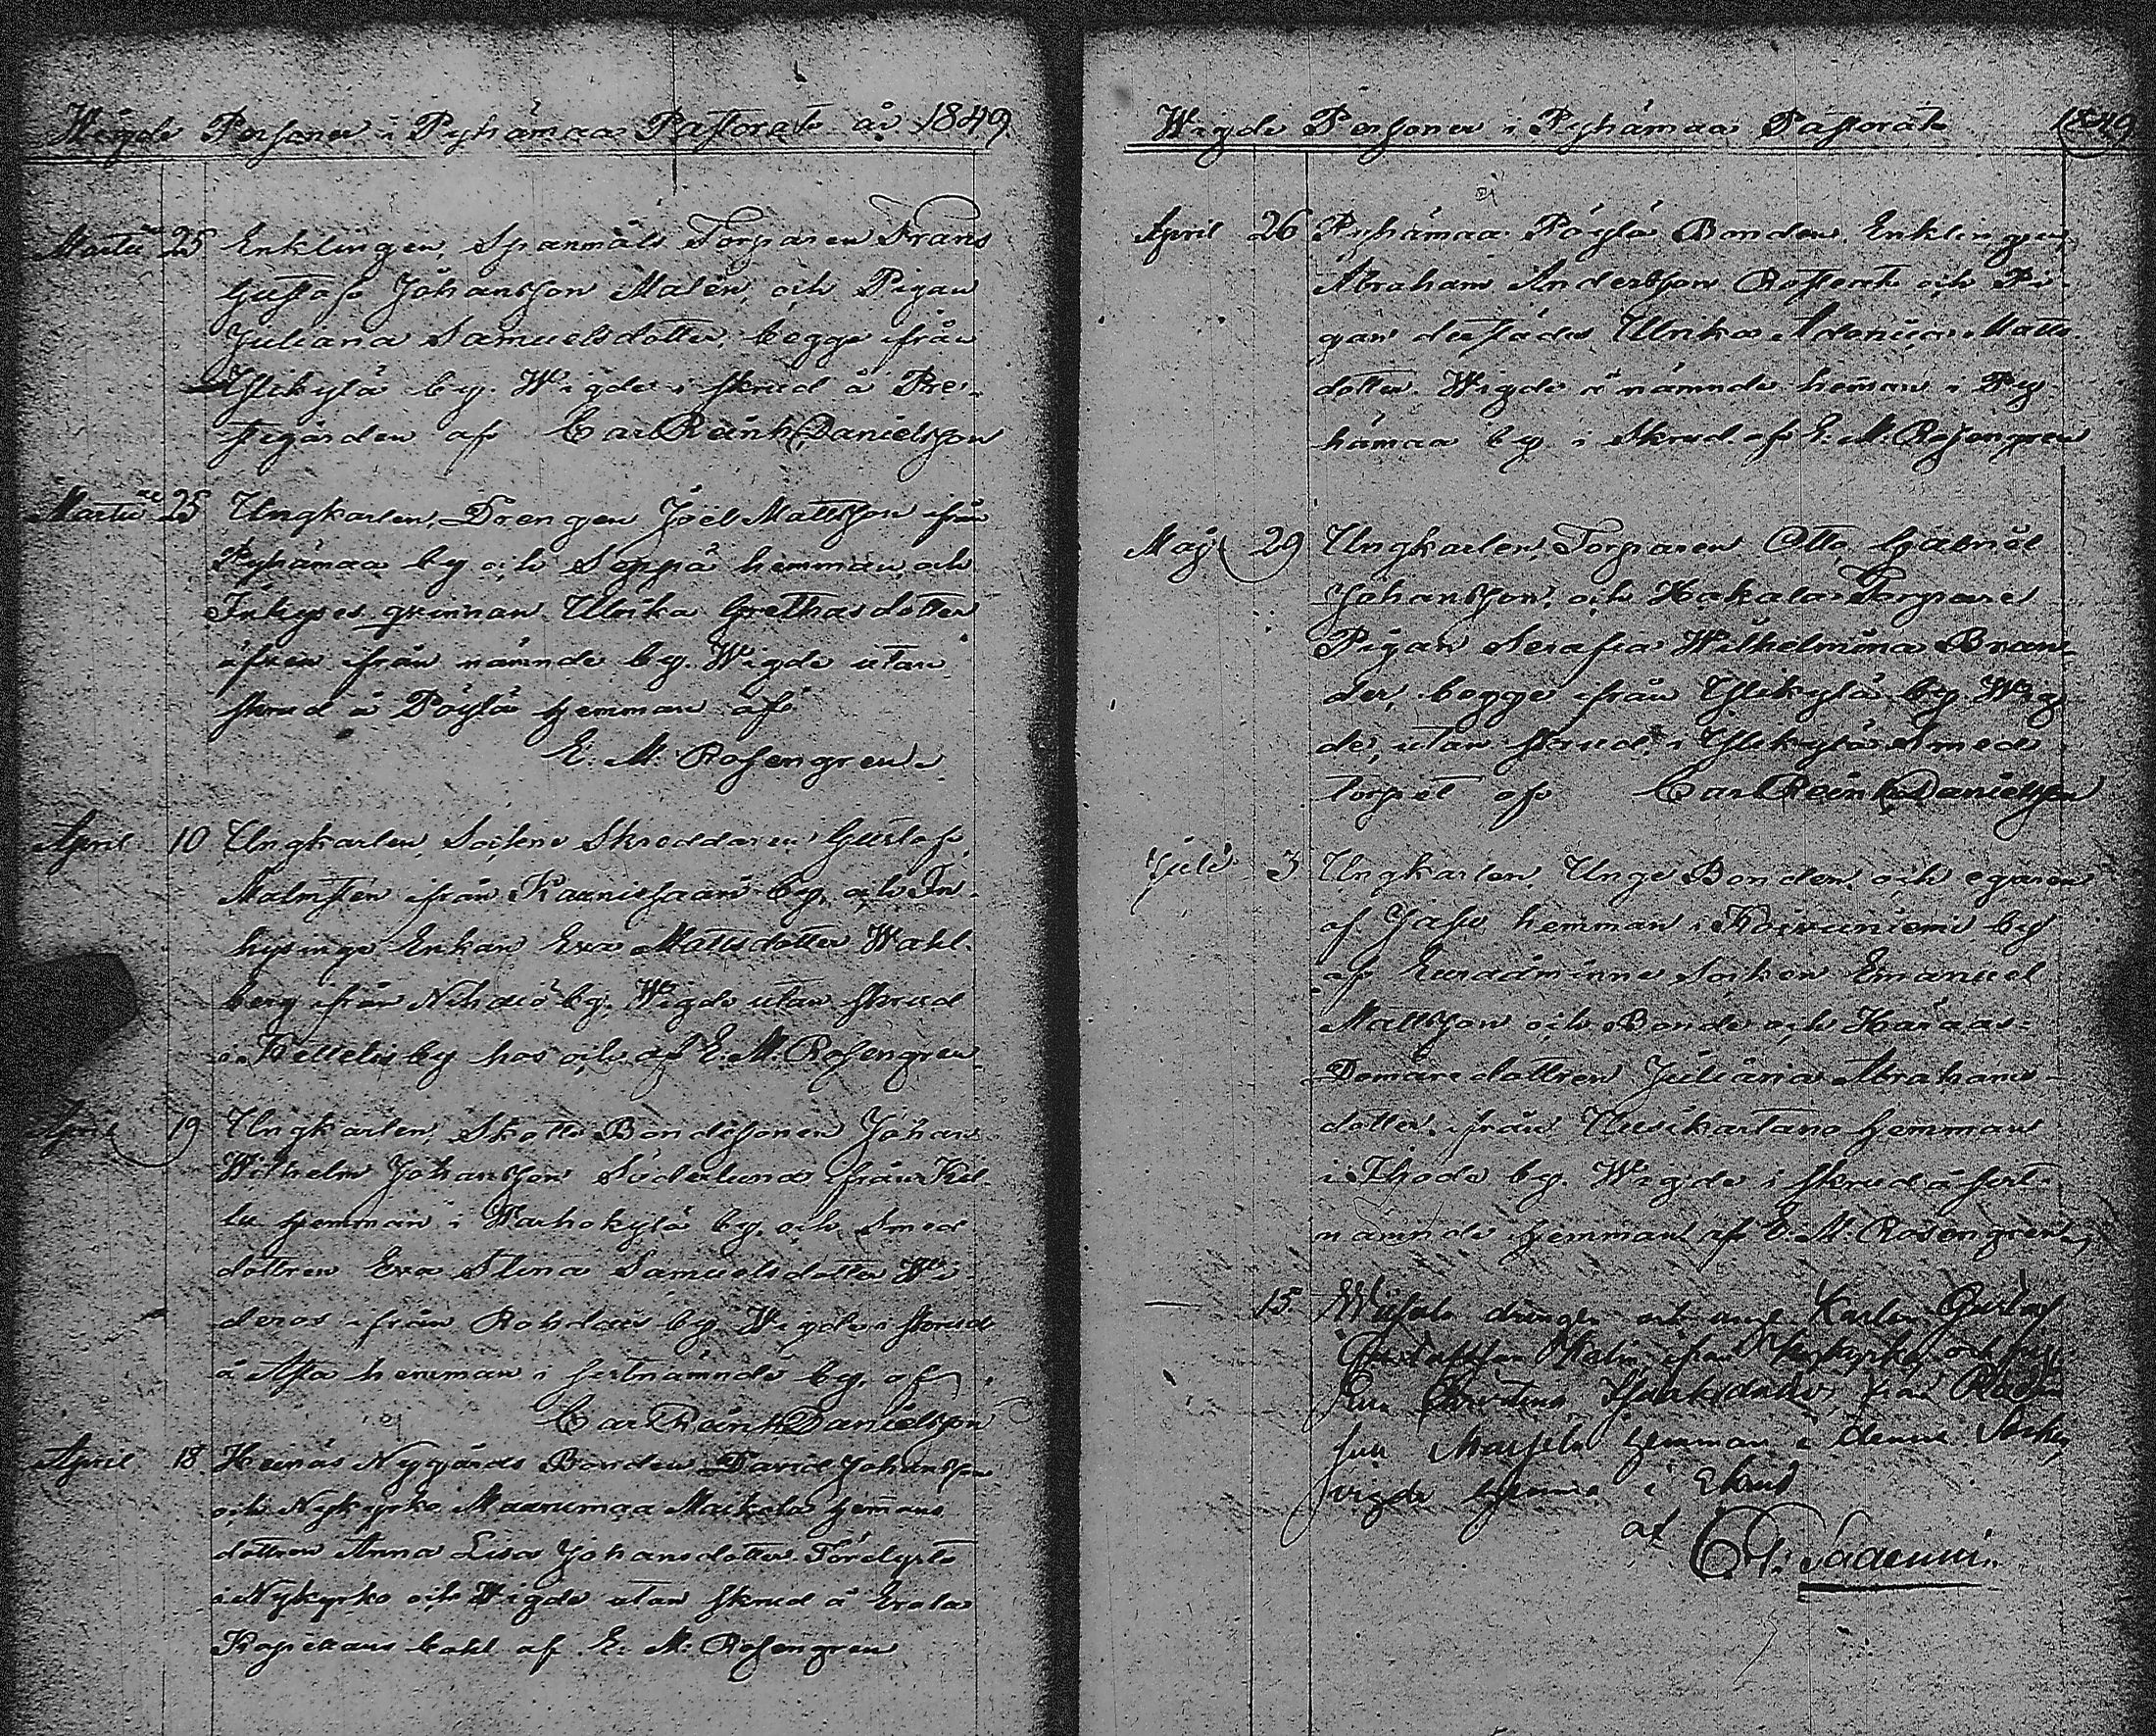 Wigde Personer i Pyhämaa Pastorat år 1849
Martii 25 Enklingen, Spanmåls Torparen Frans
Gustaf Johansson Malèn, och Pigan
Juliana Samuelsdotter, begge ifrån
Ylikylä by. Wigde i skrud å Pre-
stgården af Carl Reinh. Danielsson
Martii 25 Ungkarlen, Drengen Joël Mattsson ifrån
Pyhämaa by och Seppä hemman, och
Inhyses qvinnan Ulrika Grethasdotter
äfven ifrån nämnde by. Wigde utan
skrud å Pöylä hemman af
E. M. Rosengren.
April 10 Ungkarlen, Sockne Skreddaren Gustaf
Malmsten ifrån Kaunissaari by, och In-
hysinge Enkan Eva Mattsdotter Wahl-
berg ifrån Nihdiö by. Wigde utan skrud
i Kettelis by hos och af E. M. Rosengren
April 19 Ungkarlen, Skatte Bondesonen Johan
Wilhelm Johansson Söderlund ifrån Kel-
lu hemman i Warhokylä by, och Smed
dottren Eva Stina Samuelsdotter Wi-
deros ifrån Rohdais by. Wigde i skrud
å hemman i sistnämnde by, af
Carl Reinh. Danielsson
April 18 Heinäs Nygårds Bonden David Johansson
och Nykyrko Maunumaa Maikola hemans
dottren Anna Lisa Johansdotter. Förelyste
i Nykyrko och Wigde utan skrud å Erola
Kapellans bohl af E. M. Rosengren
Wigde Personer i Pyhämaa Pastorat 1849
April 26 Pyhämaa Pöylä Bonden, Enklingen
Abraham Andersson Rostent och Pi-
gan derstädes Ulrika Adonia Matts
dotter. Wigde å nämnde heman i Py-
hämaa by i Skrud af E. M. Rosengren
Maji 29 Ungkarlen, Torparen Otto Gabriel
Johansson, och Hakala Torpare
Pigan Serafia Wilhelmina Bran-
der, begge ifrån Ylikylä by. Wig-
de, utan skrud i Ylikylä Smed
torpet af Carl Reinh. Danielsson
Julii 3 Ungkarlen, Unge Bonden och egaren
af hemman i Koivuniemi by
af Euraåminne Socken Emanuel
Mattsson och Bonde och Häraas-
Domare dottren Juliana Abrahams
dotter, ifrån Uusikartano hemman
i Thode by. Wigde i skrud å sist-
nämnde hemman af E. M. Rosengren
— 15. drengen Karlen Gustaf
Gustafsson ifrån Nykyrko och
Christina från
hemman i denna Sockn,
vigde hemma i Skrud
af